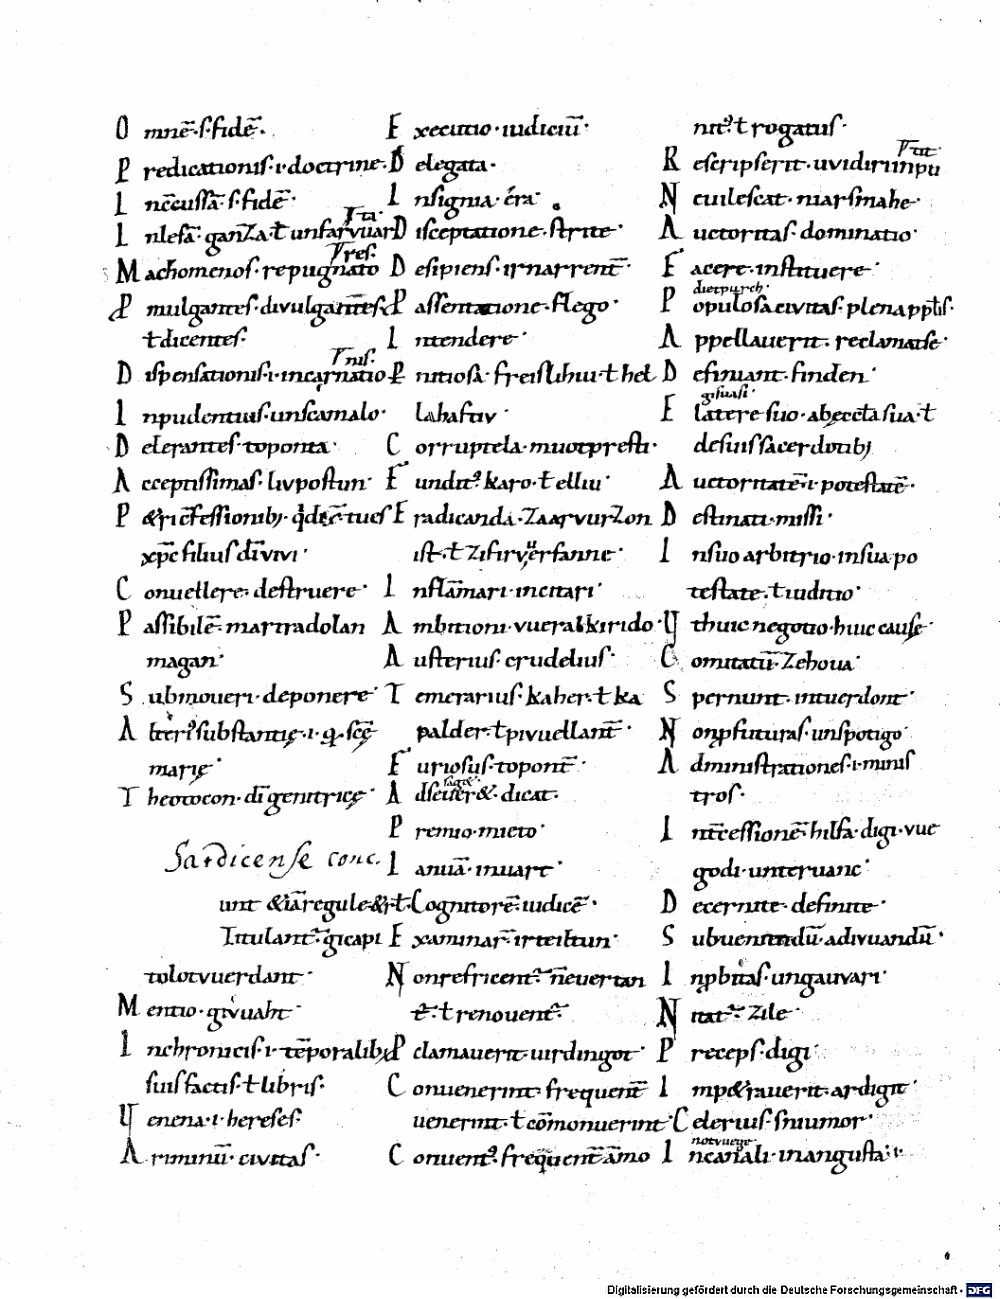 O mnē·s·fidē·
P redicationis·i·doctrine·
I nc̄cussā·s·fidē·
I nlesā·ganza·ł unfarvuar
ᵗta·
M achomenos·repugnato
res·
P mulgantes·divulgantes·
ł dicentes·
D ispensationis·i·incarnatio
nis·
I npudentius·unscamalo·
D elerantes·toponta·
A cceptissimas·liupostun·
P &ri c̄fessionib;·qd dēc̄·tu es
xp̄c filius dī vivi·
C onuellere·destruere·
P assibilē·martradolan
magan·
S ubmoueri·deponere·
A lteri᾽substantię·i·q·scē
marię·
T heotocon·dī genitricę·
Sardicense conc.
unt &iā regule &rł·
Titulant᾽·gicapi
tolot vuerdant·
M entio·givuaht·
I nchronicis·i·tēporalib;
suis factis·ł libris·
U enena·i·hereses·
A riminū·civitas·
E xecutio·iudiciū·
D elegata·
I nsignia·éra·
D isceptatione·strite·
D esipiens·irnarrent̄·
P assentatione·flego·
I ntendere·
P nitiosa·freislihiu·ł hel
lahaftiv·
C orruptela·muotpresti·
F undit᾽karo·ł elliu·
E radicanda·zaarvurzon
ist·ł zifirvuerfanne·
I nflāmari·incitari·
A mbitioni·vueraltkirido·
A usterius·crudelius·
T emerarius·kaher·ł ka
palder·ł pivuellant̄·
F uriosus·topont̄·
A dseuer&·dicat·
saget
P remio·mieto·
I anuā·inuart·
Cognitorē·iudicē·
E xaminar̄·irteiltun·
N onrefricent᾽·n̄evertan
t᾽·ł renouent᾽·
P clamauerit·uirdingot·
C onuenerint·frequent̄
uenerint·ł cōmonuerint·
C onuent᾽·frequent̄ āmo
nit᾽·ł rogatus·
R escripserit·uvidiriinpu
tit·
N euilescat·niarsmahe·
A uctoritas·dominatio·
F acere·instituere·
dietpurch·
P opulosa civitas·plena ppłis·
A ppellauerit·reclamatse·
D efiniant·finden·
gisuasi·
E latere suo·abeccła sua·ł
desuis sacerdotib;
A uctoritatē·i·potestatē·
D estinati·missi·
I nsuo arbitrio·insua po
testate·ł iuditio·
U t huic negotio·huic cause·
C omitatū·zehoua·
S pernunt·intuerdont·
N onpfuturas·unspotigo·
A dministrationes·i·minis
tros·
I nt̄cessionē·hilfa·digi·vue
godi·unteruanc·
D ecernite·definite·
S ubueniendū·adivuandū·
I npbitas·ungauvari·
N itat᾽·zile·
P receps·digi·
I mp&rauerit·ardigit·
C elerius·sniumor·
notvuege·
I ncanali·inangusta·i·
Digitalisierung gefördert durch die Deutsche Forschungsgemeinschaft · DFG